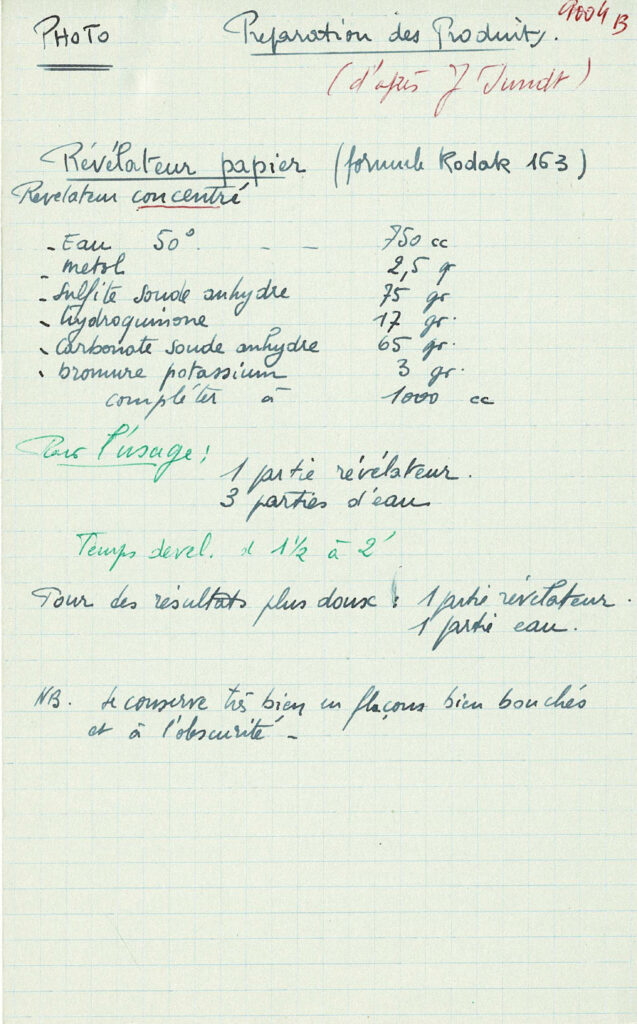 9004 B
PHOTO Préparation des Produits.
(d'après J Jundt)
Révélateur papier (formule Kodak 163)
Révélateur concentré
- Eau 50°. - - 750 cc
- metol 2,5 gr
- sulfite soude anhydre 75 gr
- hydroquinone 17 gr.
- carbonate soude anhydre 65 gr.
- bromure potassium 3 gr.
compléter à 1000 cc
Pour l'usage !
1 partie révélateur.
3 parties d'eau
Temps devel. d 1½ à 2'
Pour des résultats plus doux : 1 partie révélateur.
1 partie eau.
NB. se conserve très bien en flaçons bien bouchés
et à l'obscurité -